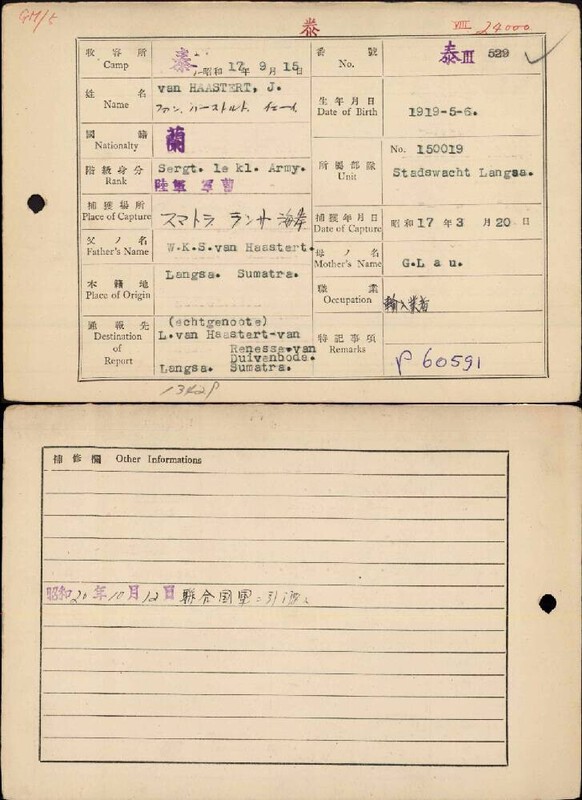 泰
VIII 24000
收容所 Camp 泰 昭和 17 年 9 月 15 日
番號 No. 泰 III 529
姓名 Name van HAASTERT, J.
生年月日 Date of Birth 1919-5-6.
國籍 Nationality 蘭
階級身分 Rank Sergt. 1e kl. Army.
陸軍 軍曹
所屬部隊 Unit No. 150019
Stadswacht Langsa.
捕獲場所 Place of Capture スマトラ ランサ 海岸
捕獲年月日 Date of Capture 昭和 17 年 3 月 20 日
父ノ名 Father's Name W.K.S.van Haastert.
母ノ名 Mother's Name G.L a u.
本籍地 Place of Origin Langsa. Sumatra.
職業 Occupation 輸入業者
通報先 Destination of Report (echtgenoote)
L.van Haastert-van
Renesse-van
Duivenbode.
Langsa. Sumatra.
特記事項 Remarks P 60591
補修欄 Other Informations
昭和 20 年 10 月 12 日 聯合国軍ニ引渡ス